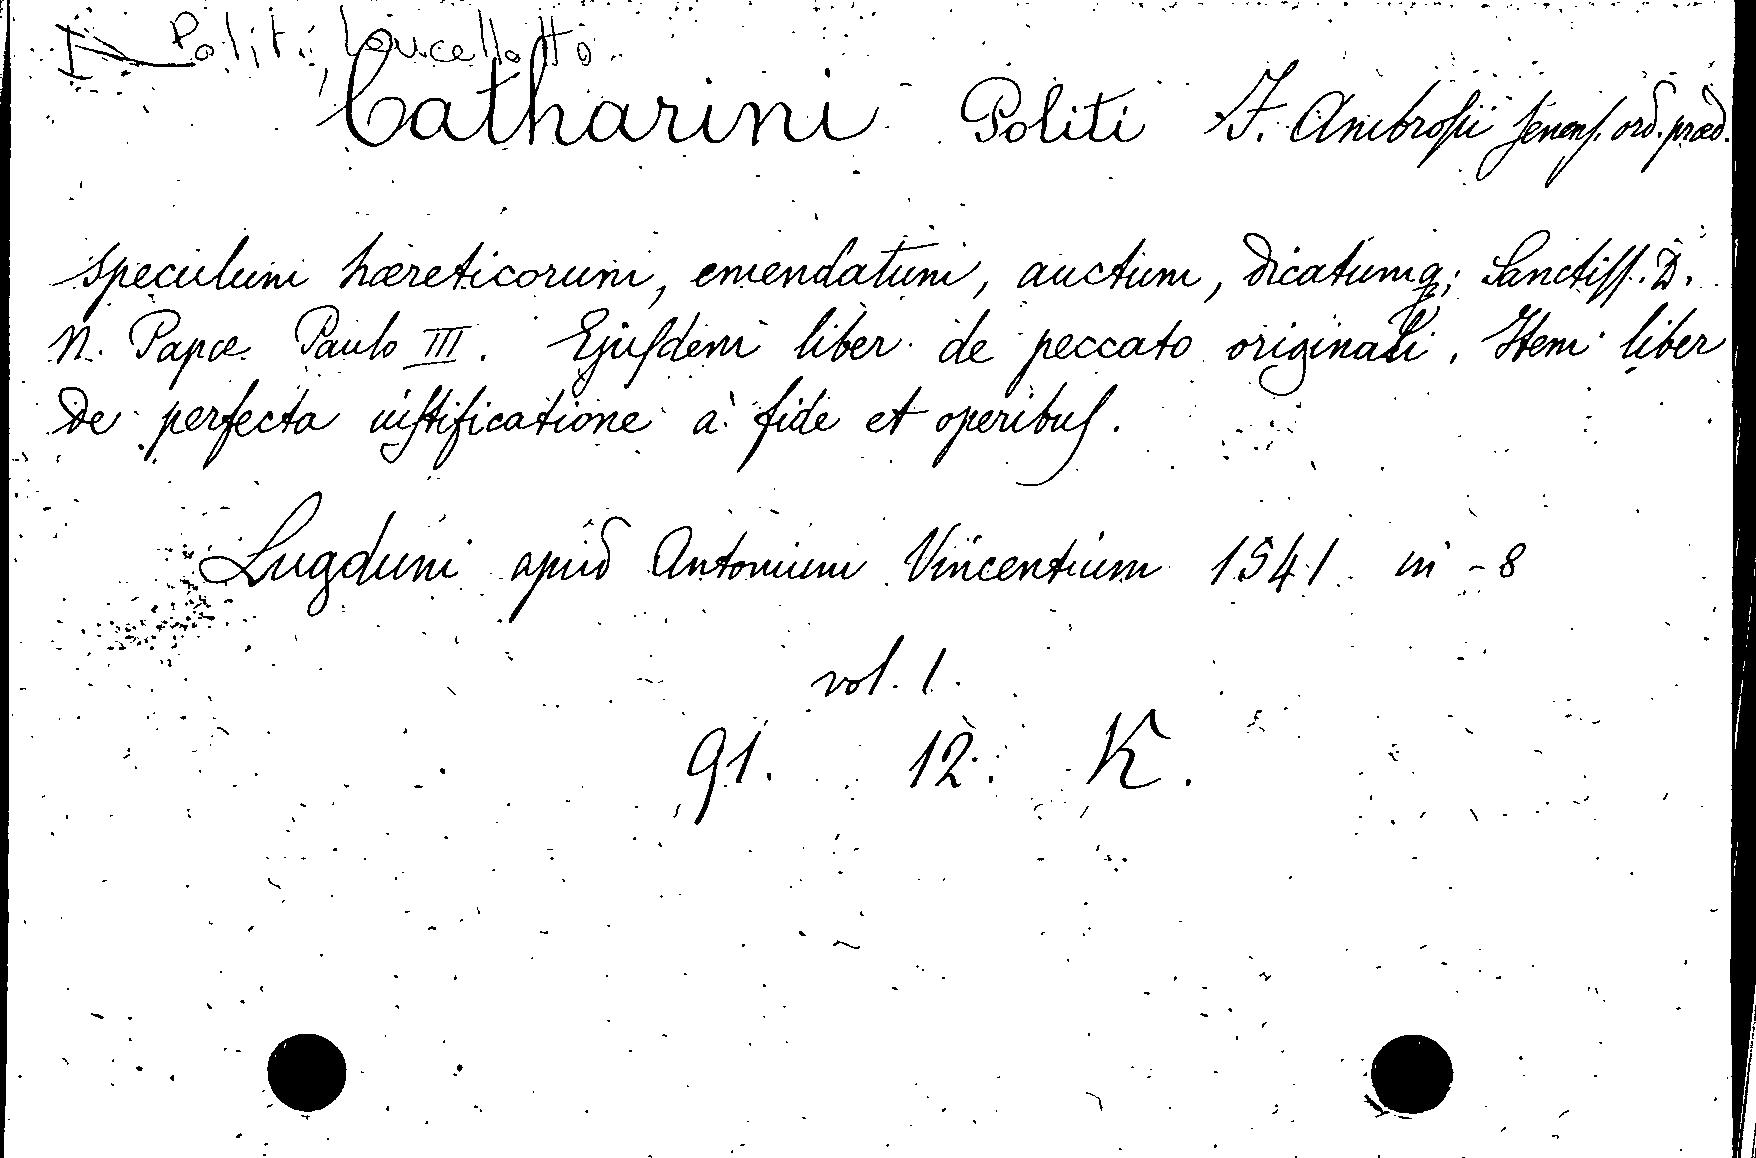 Politi, Lancellotto
Catharini Politi F. Ambrosii Senens. ord. præd.
Speculum hæreticorum, emendatum, auctum, dicatumq; Sanctiss. D.
N. Papæ Paulo III. Ejusdem liber de peccato originali. Item liber
de perfecta iustificatione à fide et operibus.
Lugduni apud Antonium Vincentium 1541 in-8
vol. 1.
91. 12. K.